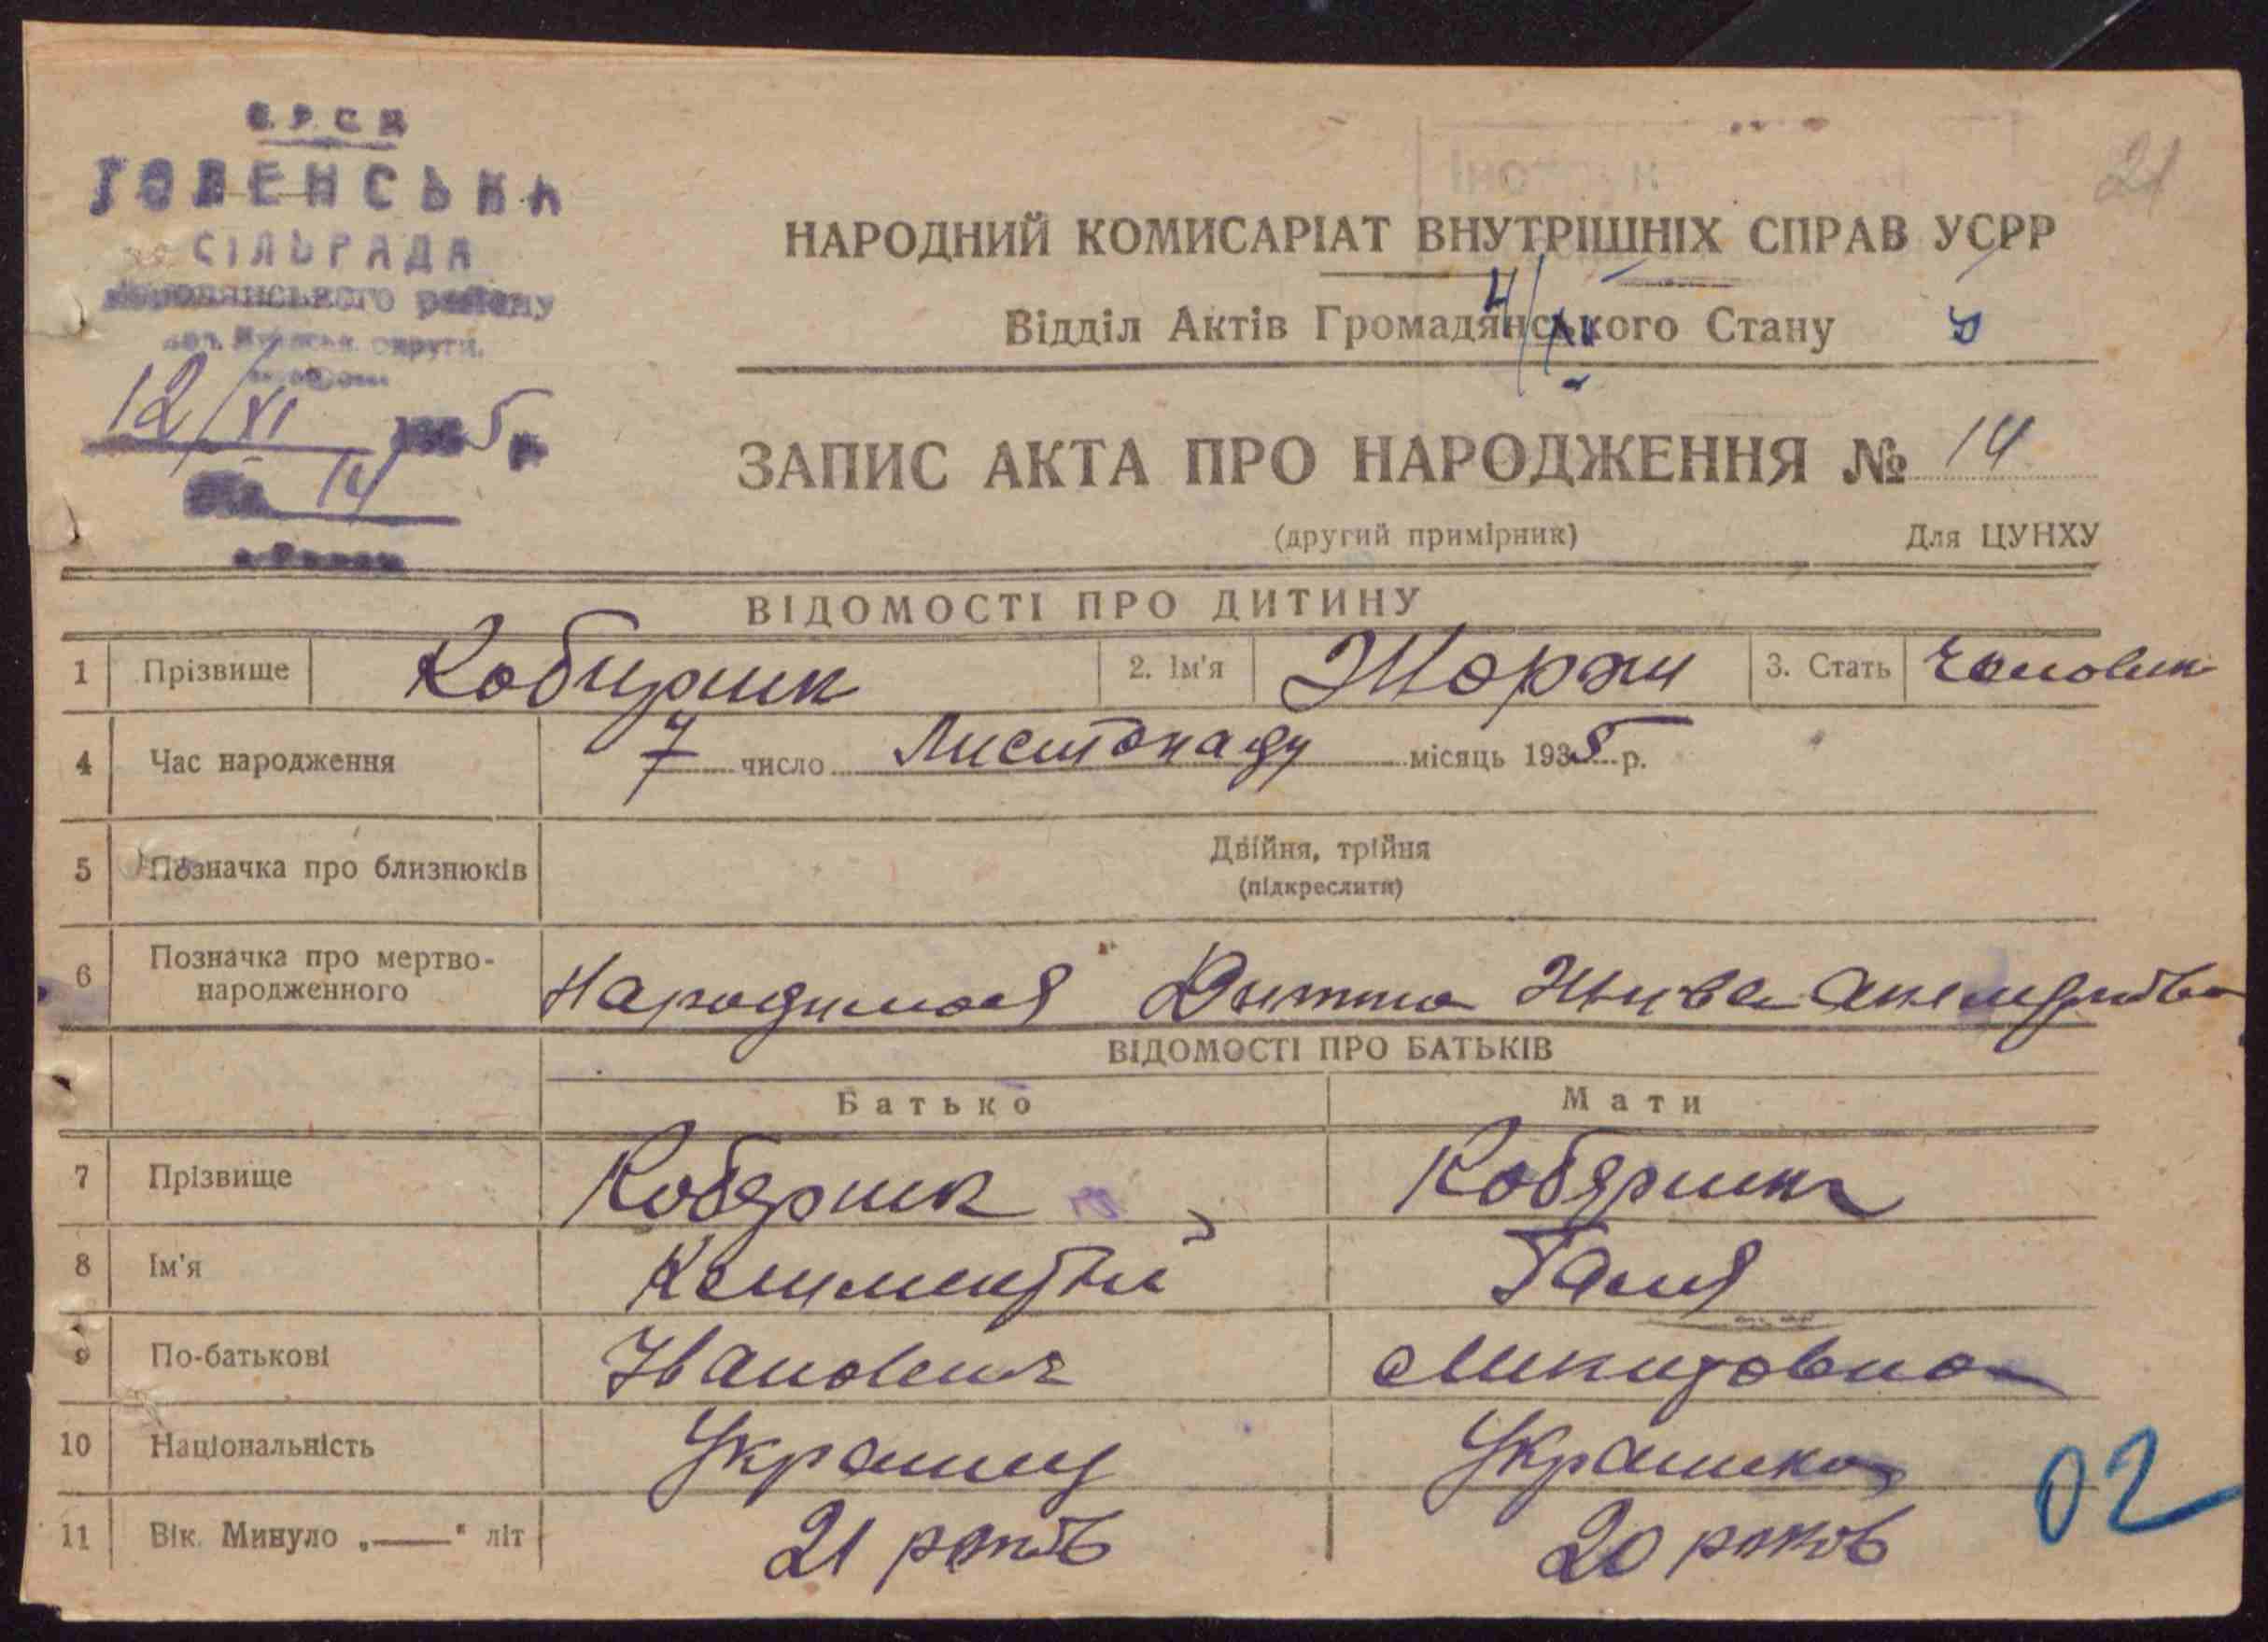 21
СІЛЬРАДА
району
12/XI 5
14
НАРОДНИЙ КОМИСАРІАТ ВНУТРІШНІХ СПРАВ УСРР
Відділ Актів Громадянського Стану
ЗАПИС АКТА ПРО НАРОДЖЕННЯ № 14
(другий примірник) Для ЦУНХУ
ВІДОМОСТІ ПРО ДИТИНУ
1 Прізвище Кобирник 2. Ім'я Жоржи 3. Стать Чоловик
4 Час народження 7 число Листопаду місяць 1935 р.
5 Позначка про близнюків Двійня, трійня
(підкреслити)
6 Позначка про мертво-
народженного Народилося Дитина Жива
ВІДОМОСТІ ПРО БАТЬКІВ
Батько Мати
7 Прізвище Кобярник Кобярник
8 Ім'я Галя
9 По-батькові Івановичь Микитовна
10 Національність Украинц Украинка
11 Вік. Минуло „——" літ 21 роков 20 роков
02